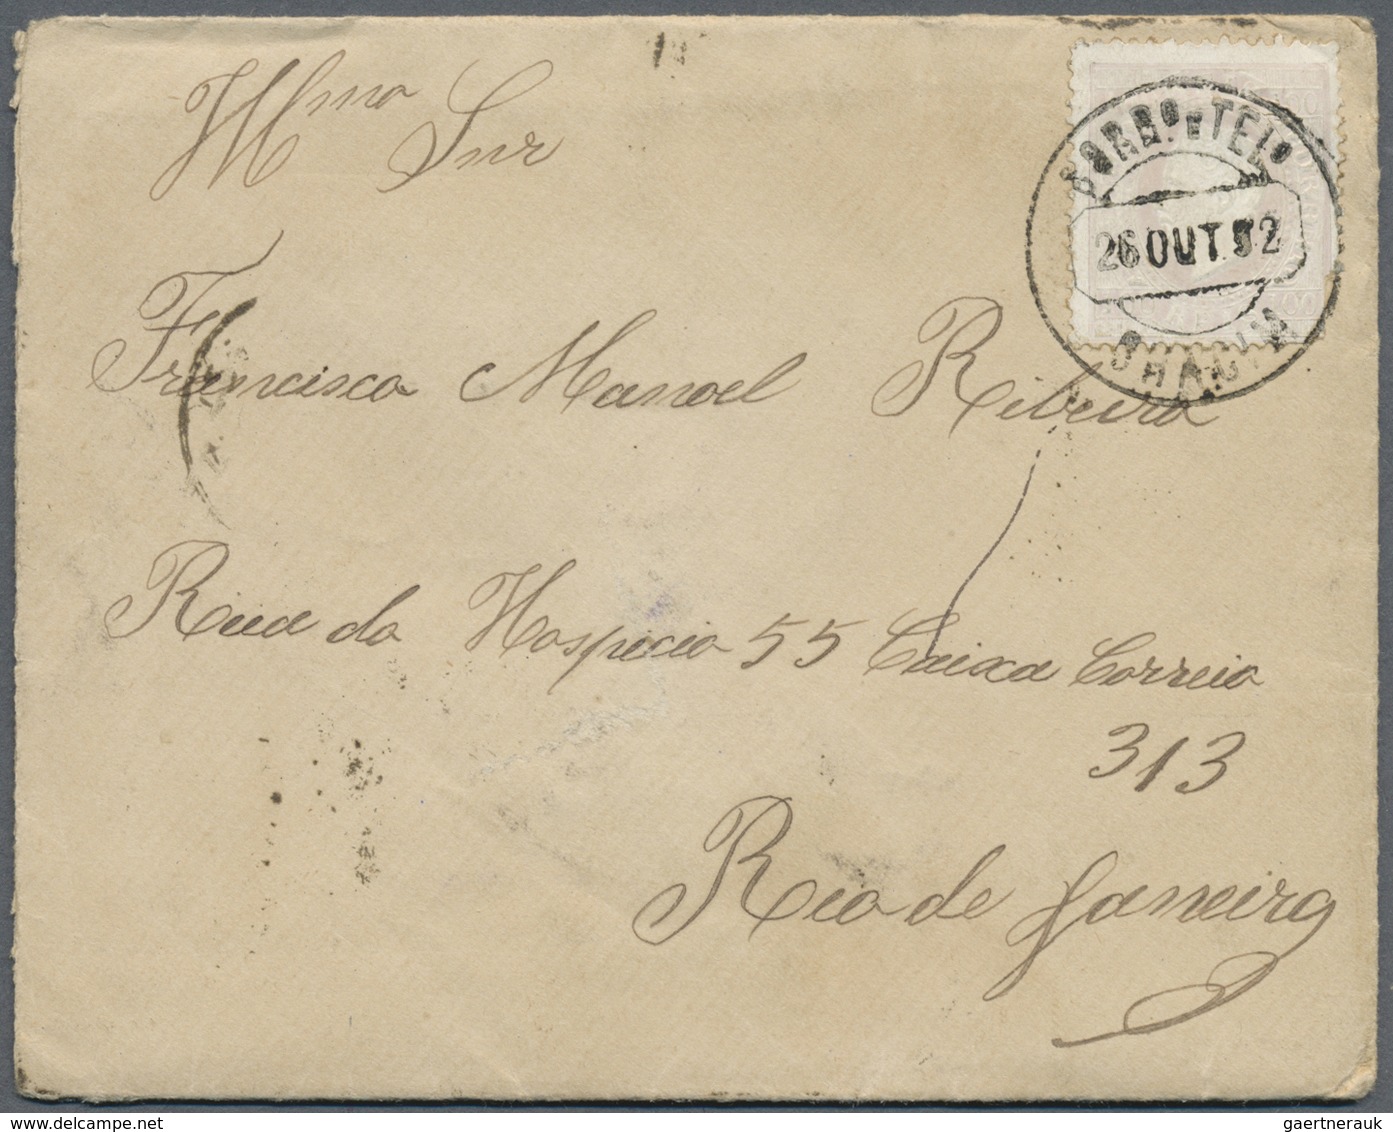 Illmo Snr
CORRO. E TELO.
26 OUT. 92
Francisco Manoel Ribeiro
Rua do Hospicio 55 Caixa Correio
313
Rio de Janeiro
gaertnerauk